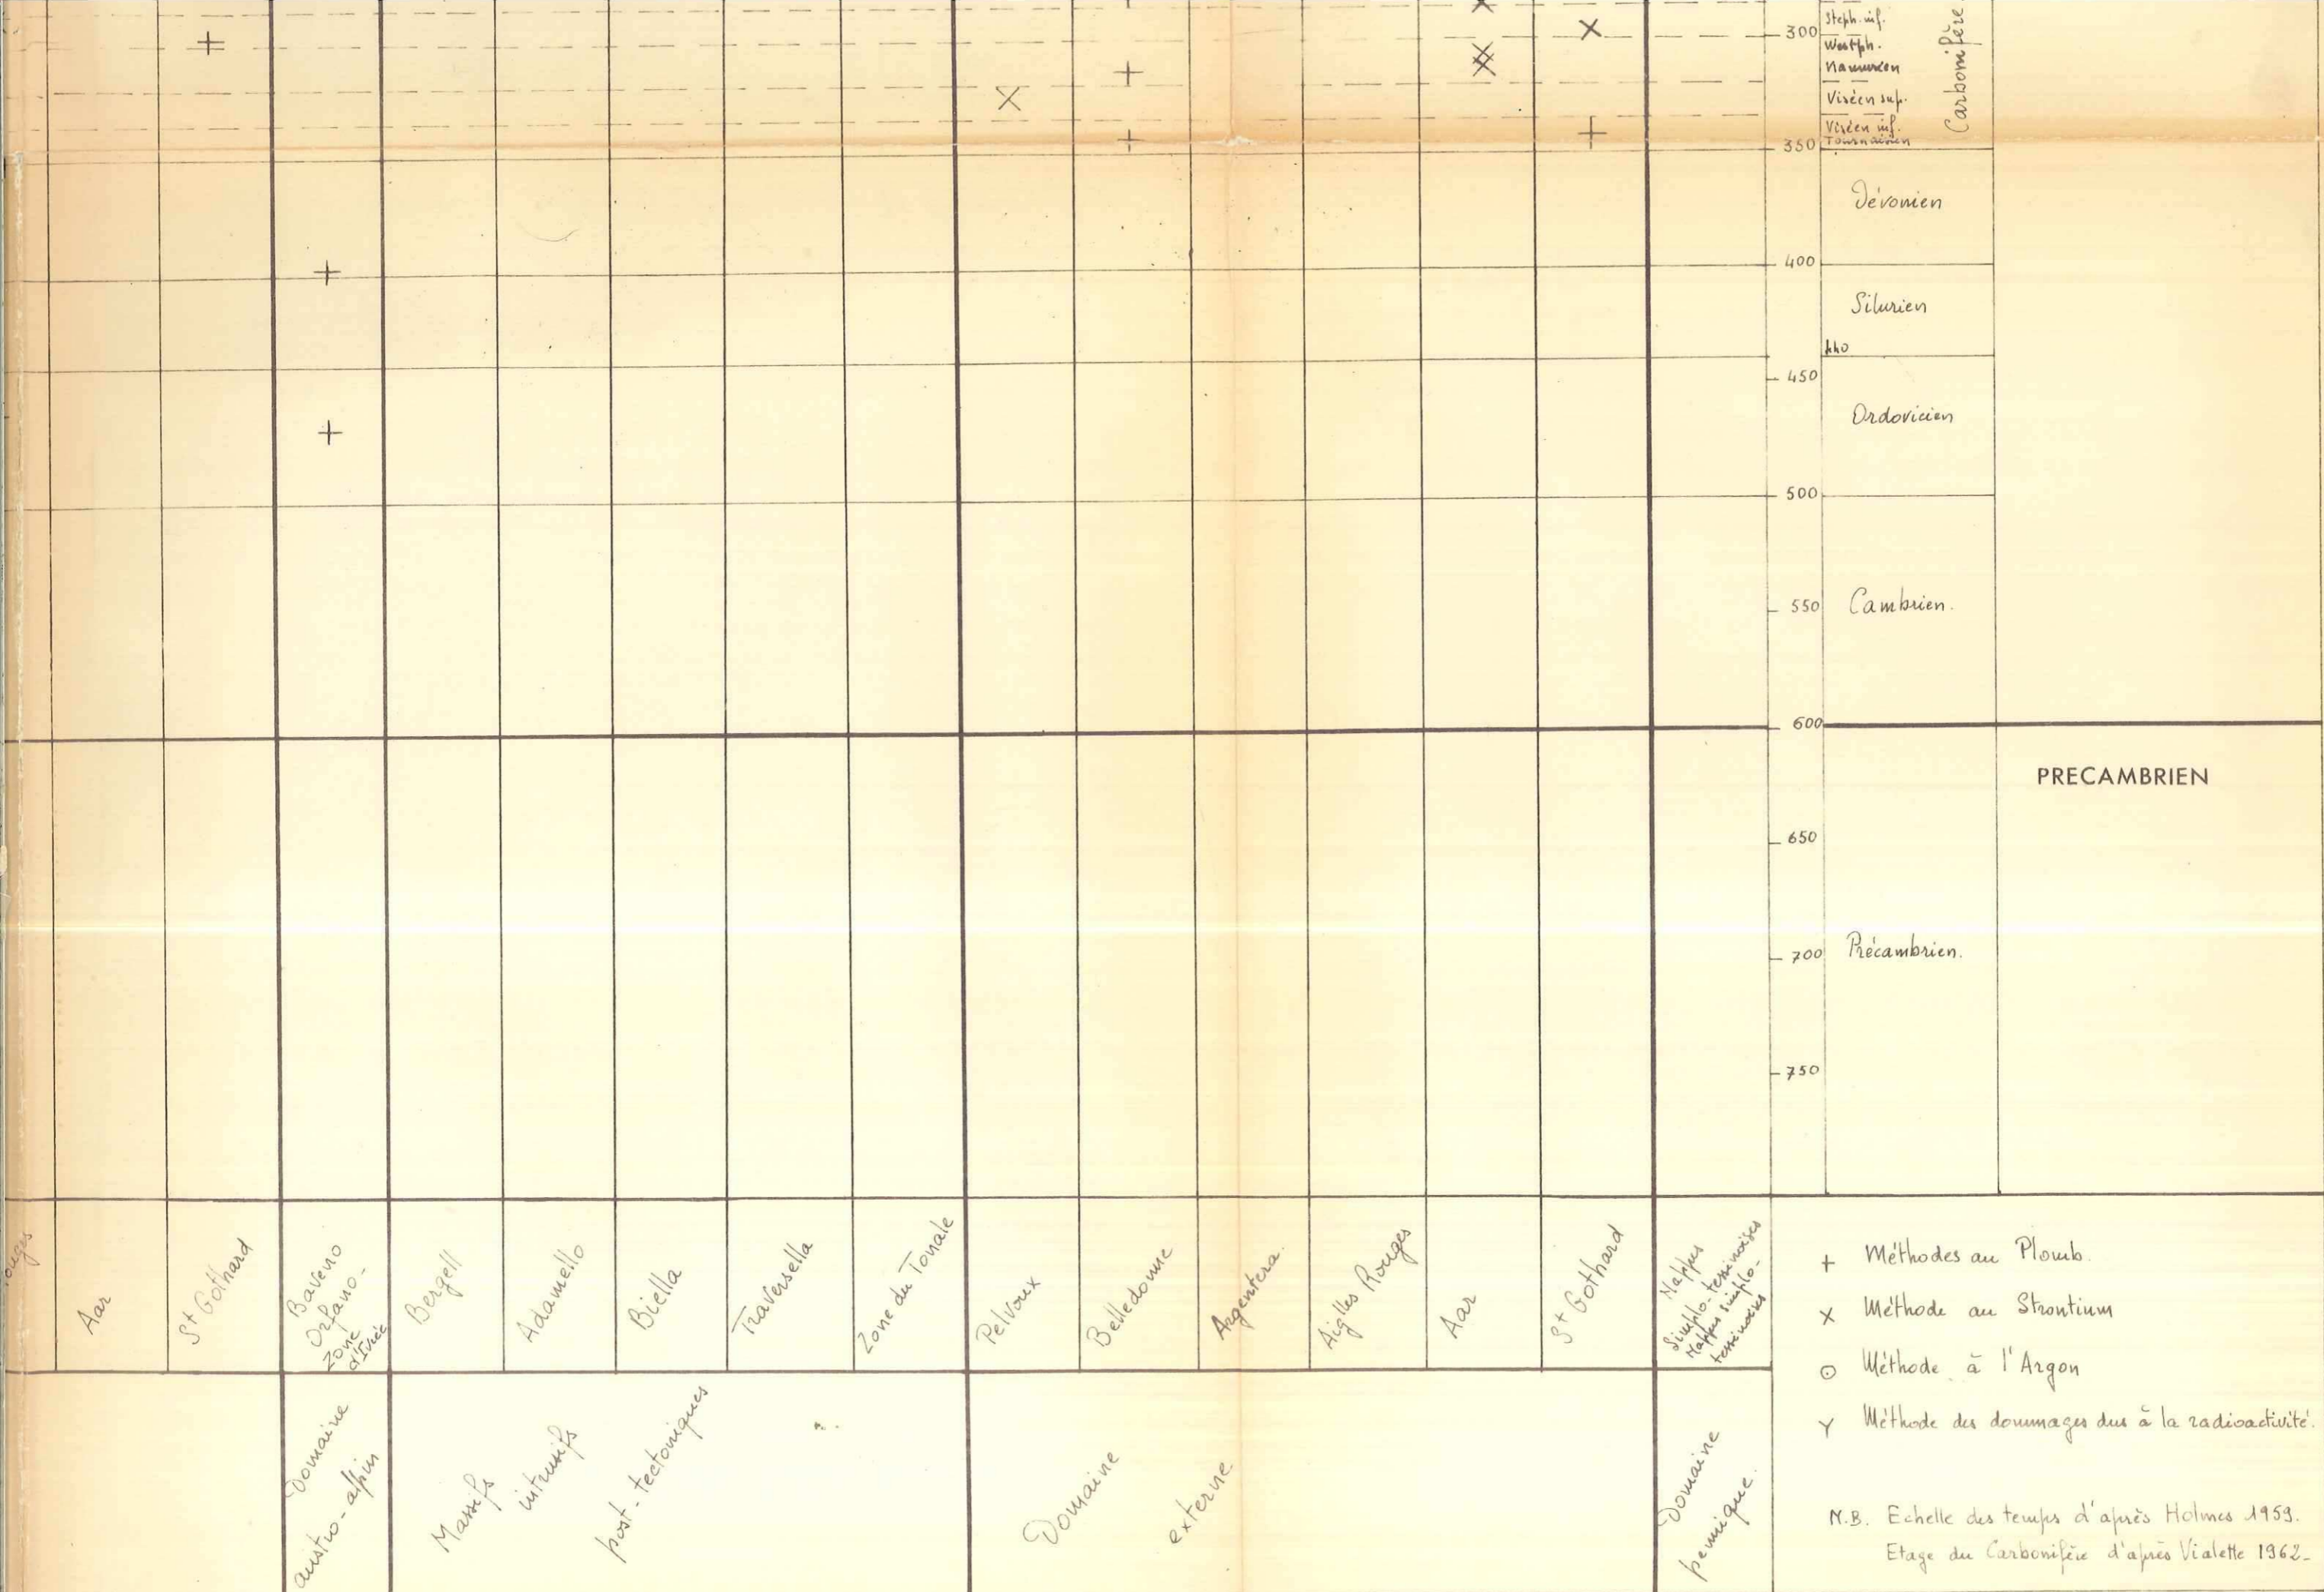 Steph. inf.
300
Westph.
Namurien
Viséen sup.
Viséen inf.
350
Tournaisien
Carbonifère
Dévonien
400
Silurien
440
450
Ordovicien
500
550
Cambrien.
600
PRECAMBRIEN
650
700
Précambrien.
750
ouges
Aar
St Gothard
Baveno
Orfano-
Zone
d'Ivrée
Bergell
Adamello
Biella
Traversella
Zone du Tonale
Pelvoux
Belledonne
Argentera.
Aiglles Rouges
Aar
St Gothard
Nappes
Simplo-tessinoises
Nappes simplo-
tessinoises
Domaine
austro-alpin
Massifs
intrusifs
post-tectoniques
?.
Domaine
externe.
Domaine
pennique.
+ Méthodes au Plomb.
x Méthode au Strontium
⊙ Méthode à l'Argon
Y Méthode des dommages dus à la radioactivité.
N.B. Echelle des temps d'après Holmes 1959.
Etage du Carbonifère d'après Vialette 1962-